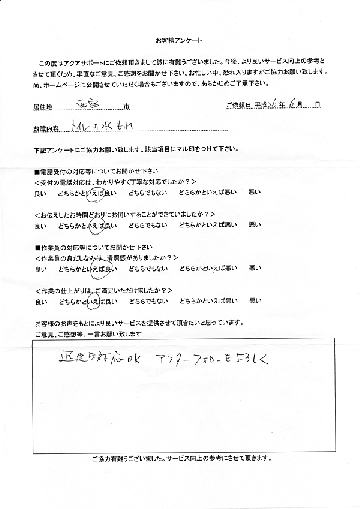 お客様アンケート
この度はアクアサポートにご依頼頂きまして誠に有難うございました。今後、より良いサービス向上の参考と
させて頂くため、率直なご意見、ご感想をお聞かせ下さい。お忙しい中、恐れ入りますがご協力お願い致します。
尚、ホームページにて公開させていただく場合もございますので、あらかじめご了承下さい。
居住地 市 ご依頼日 平成 年 月 日
依頼内容 水もれ
下記アンケートにご協力お願い致します。該当項目にマル印をつけて下さい。
■電話受付の対応等についてお聞かせ下さい
<受付の電話対応は、わかりやすく丁寧な対応でしたか?>
良い どちらかといえば良い どちらでもない どちらかといえば悪い 悪い
<お伝えしたお時間どおりにお伺いすることができていましたか?>
良い どちらかといえば良い どちらでもない どちらかといえば悪い 悪い
■作業員の対応等についてお聞かせ下さい
<作業員の身だしなみは、清潔感がありましたか?>
良い どちらかといえば良い どちらでもない どちらかといえば悪い 悪い
<作業の仕上がりは、ご満足いただけましたか?>
良い どちらかといえば良い どちらでもない どちらかといえば悪い 悪い
お客様のお声をもとにより良いサービスを提供させて頂きたいと思っています。
ご意見、ご感想等、一言お願い致します
対応OK アフターフォローもよろしく
ご協力有難うございました。サービス向上の参考にさせて頂きます。